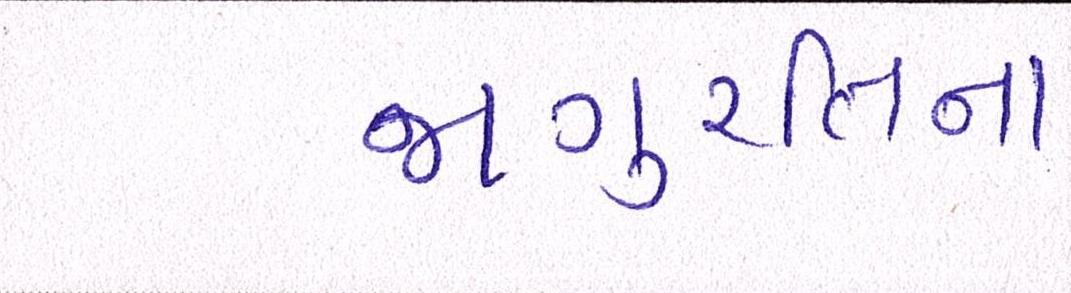 જાગુરતિના